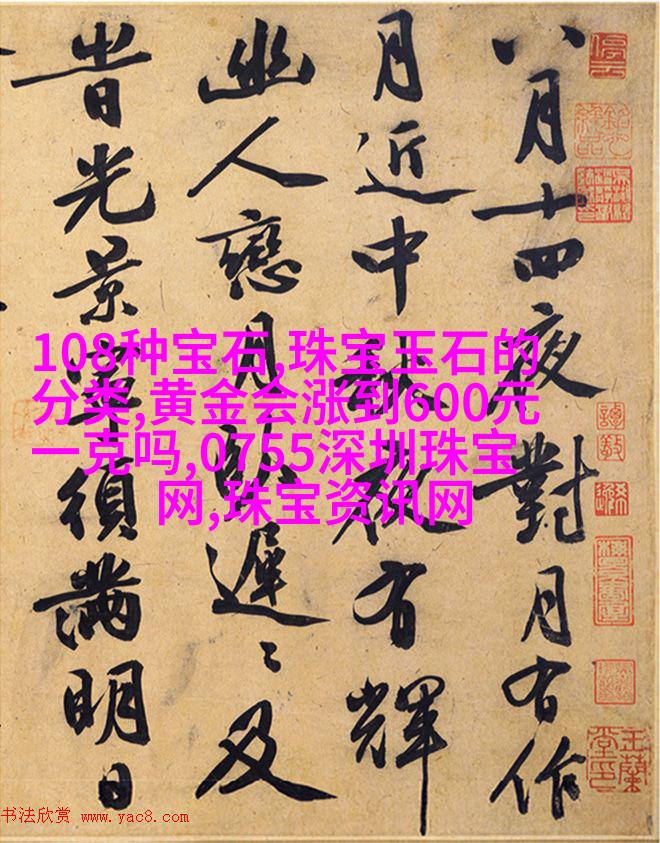 八月十四夜對月有作
月近中秋夜有輝
幽人戀月臥遲〻及
旹光景須滿明日
108种宝石,珠宝玉石的
分类,黄金会涨到600元
一克吗,0755深圳珠宝
网,珠宝资讯网
停雲
玉蘭堂印
书法欣赏 www.yac8.com